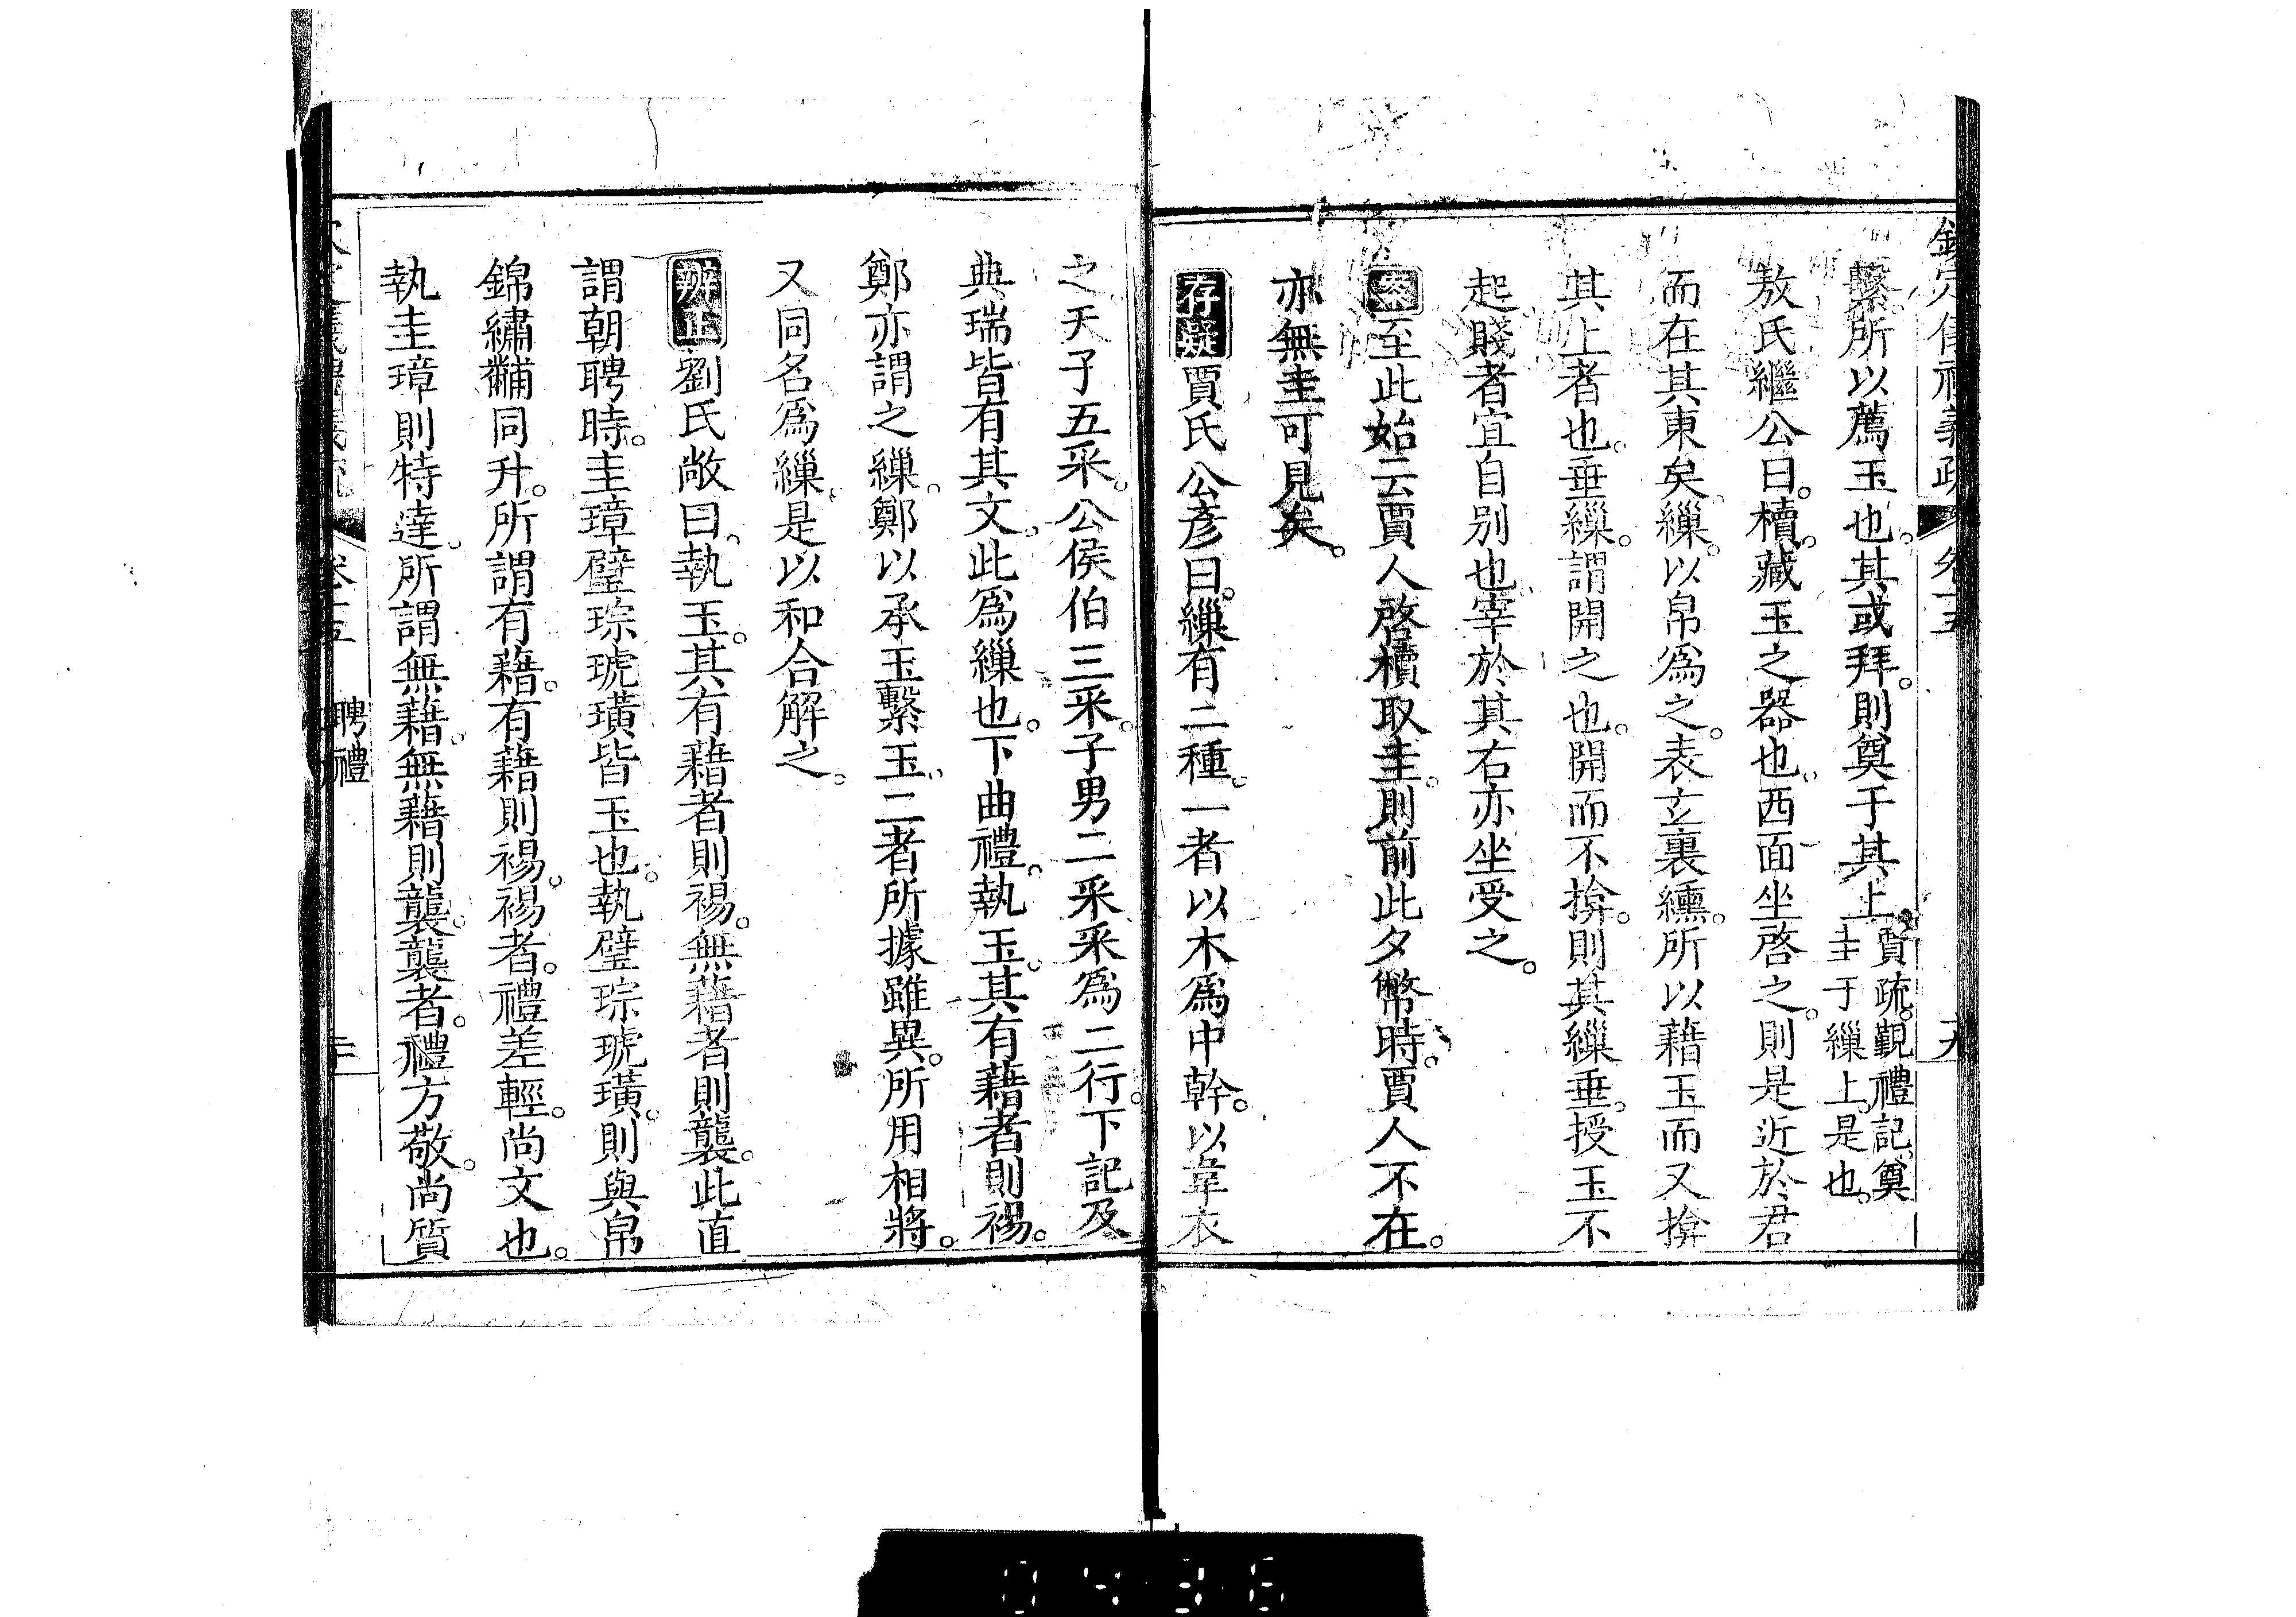 繫所以薦玉也。其或拜。則奠于其上賈疏。覲禮記。奠圭于繅上。是也。
敖氏繼公曰。櫝。藏玉之器也。西面坐啓之。則是近於君
而在其東矣。繅。以帛爲之。表玄裏纁。所以藉玉而又揜
其上者也。垂繅。謂開之也。開而不揜。則其繅垂。授玉不
起。賤者宜自別也。宰於其右亦坐受之。
案至此始云賈人啓櫝取圭。則前此夕幣時。賈人不在。
亦無圭可見矣。
存疑賈氏公彥曰。繅有二種。一者以木爲中幹。以韋衣
之。天子五采。公侯伯三采。子男二采。采爲二行。下記及
典瑞皆有其文。此爲繅也。下曲禮。執玉。其有藉者則裼。
鄭亦謂之繅。鄭以承玉繫玉。二者所據雖異。所用相將。
又同名爲繅。是以和合解之。
辨正劉氏敞曰。執玉。其有藉者則裼。無藉者則襲。此直
謂朝聘時。圭璋璧琮琥璜皆玉也。執璧琮琥璜。則與帛
錦繡黼同升。所謂有藉。有藉則裼。裼者。禮差輕。尚文也。
執圭璋則特達。所謂無藉。無藉則襲。襲者。禮方敬。尚質
聘禮